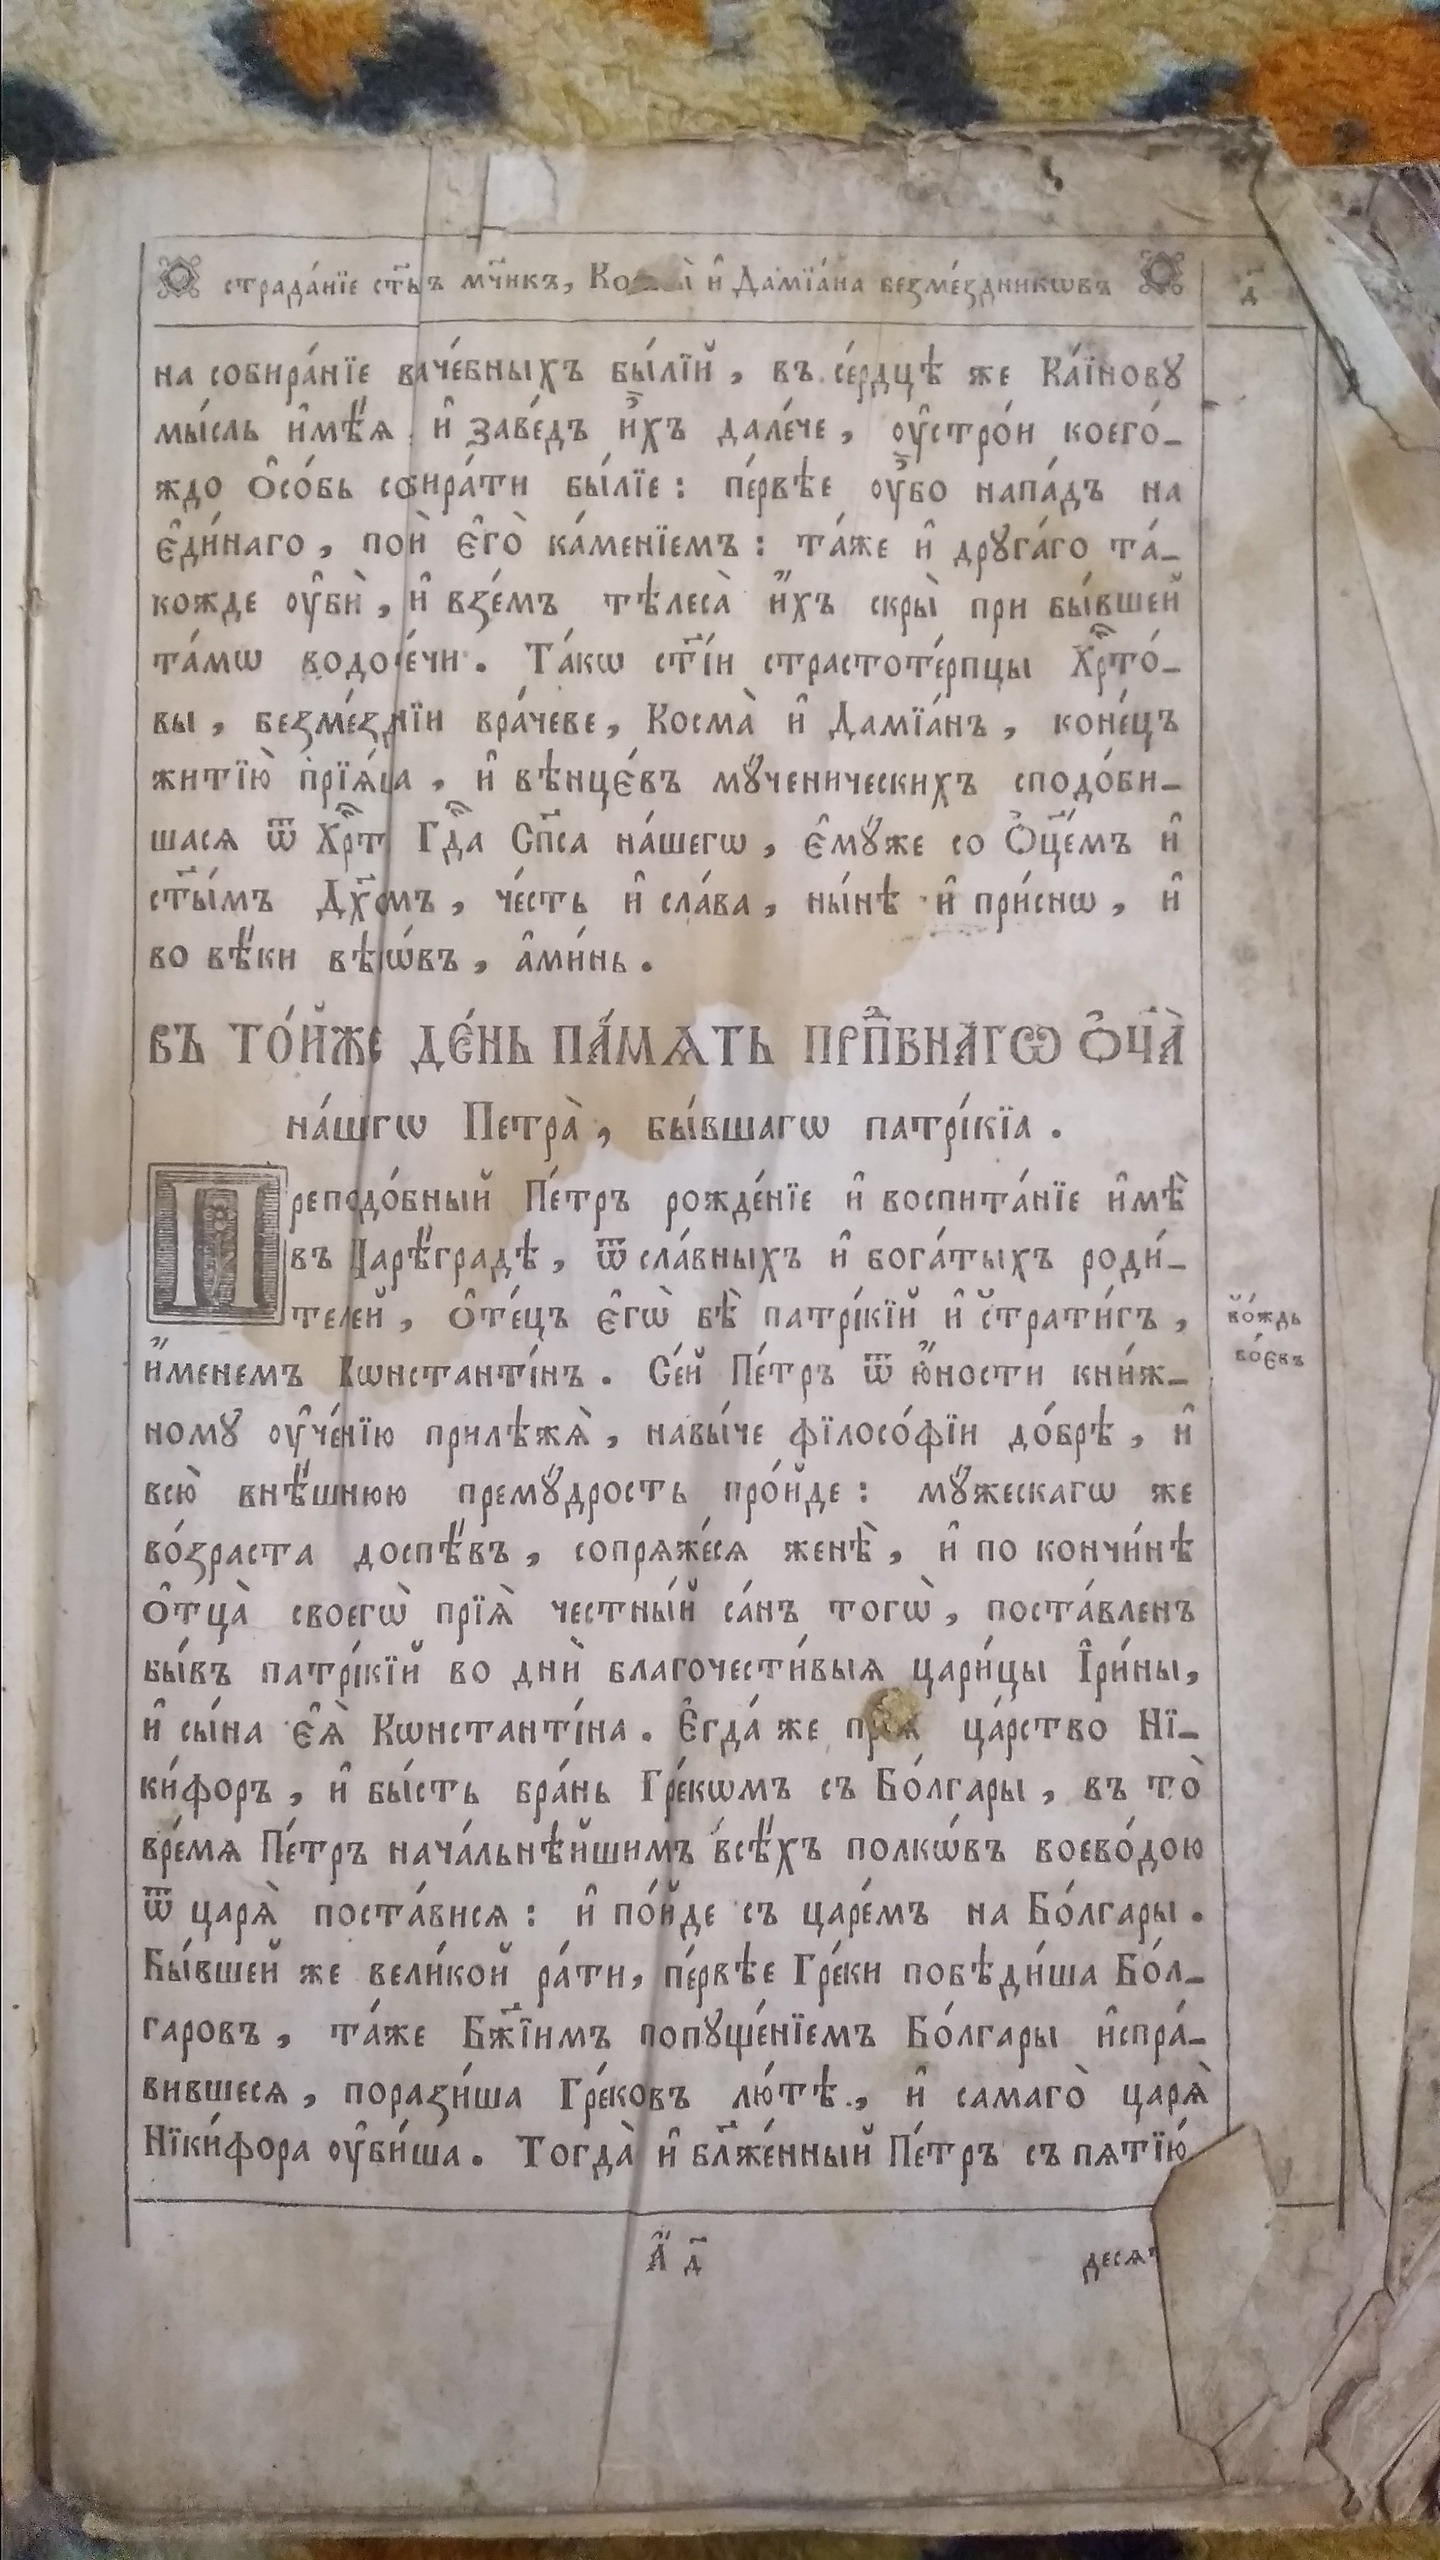 страда́нїе ст҃ы́хъ мч҃нкъ, Косм̀ы и҆ Дамїа́на безме́здникѡвъ д҃
на собира́нїе врачебныхъ бы́лїй, въ се́рдцѣ же Ка́їнову
мы́сль и҆мѣ́ѧ, и҆ заве́дъ и҆̀хъ дале́че, ᲂу҆стро́и коего́-
ждо ѻ҆со́бь собира́ти бы́лїе: пе́рвѣе ᲂу҆̀бо напа́дъ на
є҆ди́наго, побѝ є҆го̀ ка́менїемъ: та́же и҆ друга́го та́-
кожде ᲂу҆бѝ, и҆ взе́мъ тѣлеса̀ и҆́хъ скры̀ при бы́вшей
та́мѡ водоте́чи. Та́кѡ ст҃і́и страстоте́рпцы Хрⷭ҇то́-
вы, безме́зднїи вра́чеве, Косма̀ и҆ Дамїа́нъ, коне́цъ
житїю̀ прїѧ́ша, и҆ вѣнцє́въ мꙋ́ченическихъ сподо́би-
шасѧ ѿ Хрⷭ҇та̀ Гдⷭ҇а Сп҃са на́шегѡ, є҆мꙋ́же со Ѻ҆ц҃е́мъ и҆
ст҃ы́мъ Дх҃омъ, че́сть и҆ сла́ва, ны́нѣ и҆ при́снѡ, и҆
во вѣ́ки вѣкѡ́въ, а҆ми́нь.
ВЪ ТО́ЙЖЕ ДЕ́НЬ ПА́МѦТЬ ПРПⷣБНАГѠ Ѻ҆Ч҃А̀
на́шегѡ Петра̀, бы́вшагѡ патрі́кїа.
Преподо́бный Пе́тръ рожде́нїе и҆ воспита́нїе и҆мѣ̀
въ Царѣ́градѣ, ѿ сла́вныхъ и҆ бога́тыхъ роди́-
телей, ѻ҆те́цъ є҆гѡ̀ бѣ̀ патрі́кїй и҆ стратигъ,
во́ждь
во́євъ
и҆́менемъ Кѡнстанті́нъ. Се́й Пе́тръ ѿ ю҆́ности кни́ж-
ному ᲂу҆че́нїю прилѣжѧ̀, навы́че фїлосо́фїи до́брѣ, и҆
всю̀ внѣ́шнюю премꙋ́дрость про́йде: мꙋ́жескагѡ же
во́зраста доспѣ́въ, сопрѧже́сѧ женѣ̀, и҆ по кончи́нѣ
ѻ҆тца̀ своегѡ̀ прїѧ̀ честны́й са́нъ тогѡ̀, поста́вленъ
бы́въ патрі́кїй во днѝ благочести́выѧ цари́цы І҆ри́ны,
и҆ сы́на є҆ѧ̀ Кѡнстанті́на. Є҆гда́ же прїѧ̀ ца́рство Нї-
ки́форъ, и҆ бы́сть бра́нь Гре́кѡмъ съ Бо́лгары, въ то̀
вре́мѧ Пе́тръ нача́льнѣйшимъ всѣ́хъ полкѡ́въ воево́дою
ѿ царѧ̀ поста́висѧ: и҆ по́йде съ царе́мъ на Бо́лгары.
Бы́вшей же вели́кой ра́ти, пе́рвѣе Гре́ки побѣди́ша Бо́л-
гаровъ, та́же Бж҃їимъ попуще́нїемъ Бо́лгары и҆спра́-
вившесѧ, порази́ша Гре́ковъ лю́тѣ, и҆ самаго̀ царѧ̀
Нїки́фора ᲂу҆би́ша. Тогда̀ и҆ бл҃же́нный Пе́тръ съ пѧтїю́
А҆́ д҃
десѧт